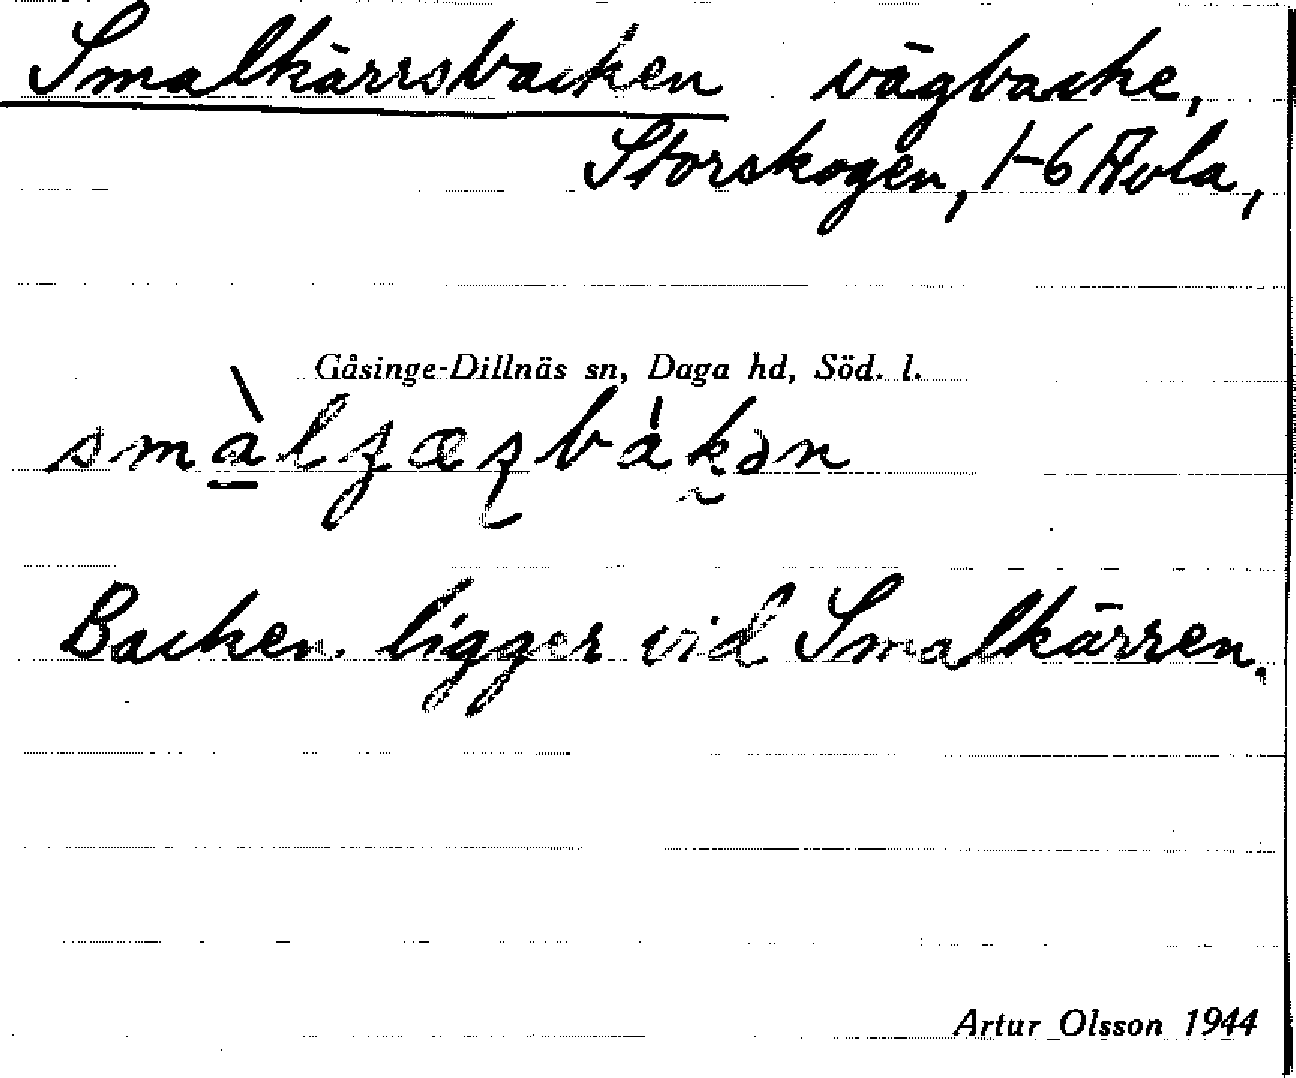 Smalkärrsbacken vägbacke,
Storskogen, 1-6 Åvla,
Gåsinge-Dillnäs sn, Daga hd, Söd. l.
Backen ligger vid Smalkärren.
Artur Olsson 1944